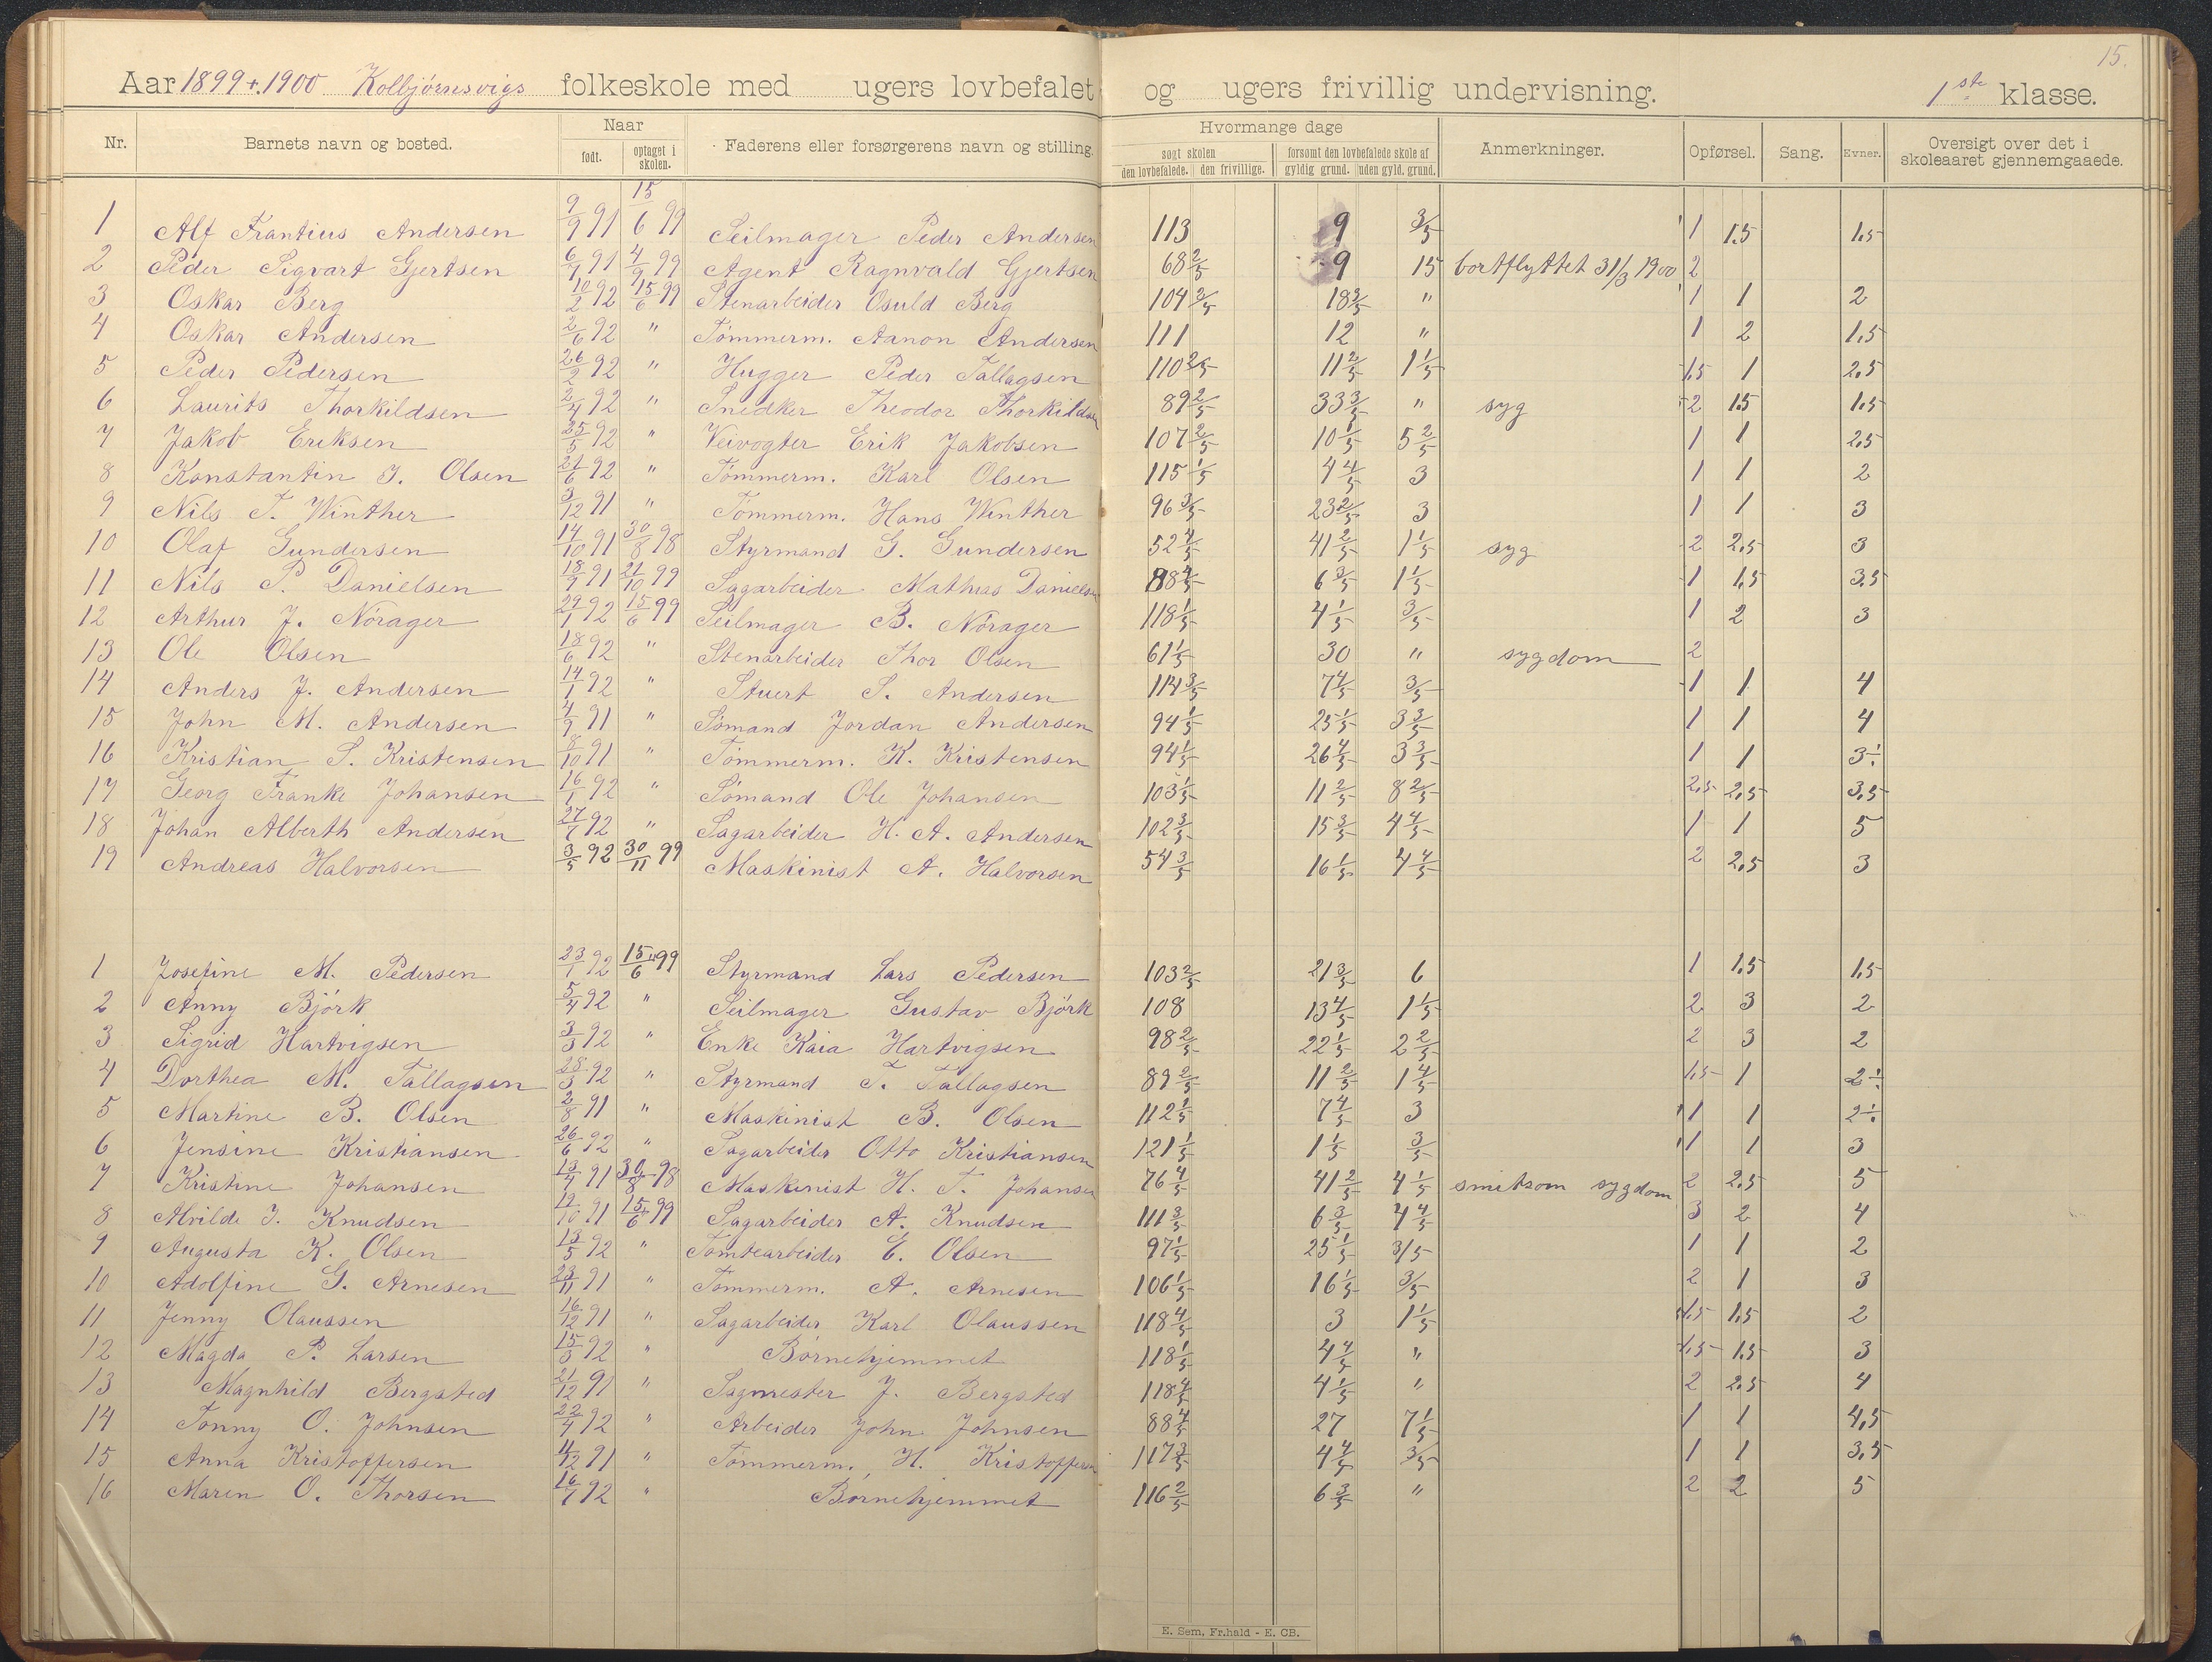 15.
Aar 1899 + 1900 Kolbjørnsvigs folkeskole med ugers lovbefalet og ugers frivillig undervisning. 1ste klasse.
Nr. Barnets navn og bosted. Naar født. optaget i skolen. Faderens eller forsørgerens navn og stilling. Hvormange dage søgt skolen den lovbefalede. den frivillige. forsømt den lovbefalede skole af gyldig grund. uden gyld. grund. Anmerkninger. Opførsel. Sang. Evner. Oversigt over det i skoleaaret gjennemgaaede.
1 Alf Frantius Andersen 9/9 91 15/6 99 Seilmager Peder Andersen 113 9 3/5 1 1.5 1.5
2 Peder Sigvart Gjertsen 6/7 91 4/9 99 Agent Ragnvald Gjertsen 68 2/5 9 15 bortflyttet 31/3 1900 2
3 Oskar Berg 10/2 92 15/6 99 Stenarbeider Osuld Berg 104 3/5 18 3/5 " 1 1 2
4 Oskar Andersen 2/6 92 " Tømmerm. Aanon Andersen 111 12 " 1 2 1.5
5 Peder Pedersen 26/2 92 " Hugger Peder Tallagsen 110 2/5 11 2/5 1 1/5 1.5 1 2.5
6 Laurits Thorkildsen 2/4 92 " Snedker Theodor Thorkildsen 89 2/5 33 3/5 " syg 2 1.5 1.5
7 Jakob Eriksen 25/5 92 " Veivogter Erik Jakobsen 107 2/5 10 1/5 5 2/5 1 1 2.5
8 Konstantin I. Olsen 21/6 92 " Tømmerm. Karl Olsen 115 1/5 4 4/5 3 1 1 2
9 Nils T. Winther 3/12 91 " Tømmerm. Hans Winther 96 3/5 23 2/5 3 1 1 3
10 Olaf Gundersen 14/10 91 30/8 98 Styrmand G. Gundersen 52 4/5 41 2/5 1 1/5 syg 2 2.5 3
11 Nils P. Danielsen 18/9 91 21/10 99 Sagarbeider Mathias Danielsen 88 4/5 6 3/5 1 1/5 1 1.5 3.5
12 Arthur J. Nörager 29/1 92 15/6 99 Seilmager B. Nörager 118 1/5 4 1/5 3/5 1 2 3
13 Ole Olsen 18/6 92 " Stenarbeider Thor Olsen 61 1/5 30 " sygdom 2
14 Anders J. Andersen 14/1 92 " Stuert S. Andersen 114 3/5 7 4/5 3/5 1 1 4
15 John M. Andersen 4/9 91 " Sømand Jordan Andersen 94 1/5 25 1/5 3 3/5 1 1 4
16 Kristian S. Kristensen 8/10 91 " Tømmerm. K. Kristensen 94 1/5 26 4/5 3 3/5 1 1 3÷
17 Georg Franke Johansen 16/1 92 " Sømand Ole Johansen 103 1/5 11 2/5 8 2/5 2.5 2.5 3.5
18 Johan Alberth Andersen 27/7 92 " Sagarbeider H. A. Andersen 102 3/5 15 3/5 4 4/5 1 1 5
19 Andreas Halvorsen 3/5 92 30/11 99 Maskinist A. Halvorsen 54 3/5 16 1/5 4 4/5 2 2.5 3
1 Josefine M. Pedersen 23/1 92 15/6 99 Styrmand Lars Pedersen 103 2/5 21 3/5 6 1 1.5 1.5
2 Anny Björk 5/4 92 " Seilmager Gustav Björk 108 13 4/5 1 1/5 2 3 2
3 Sigrid Hartvigsen 3/3 92 " Enke Kaia Hartvigsen 98 2/5 22 1/5 2 2/5 2 3 2
4 Dorthea M. Tallagsen 28/3 92 " Styrmand T. Tallagsen 89 2/5 11 2/5 1 4/5 1.5 1 2÷
5 Martine B. Olsen 2/8 91 " Maskinist B. Olsen 112 1/5 7 4/5 3 1 1 2÷
6 Jensine Kristiansen 26/6 92 " Sagarbeider Otto Kristiansen 121 1/5 1 1/5 3/5 1 1 3
7 Kristine Johansen 13/7 91 30/8 98 Maskinist H. T. Johansen 76 4/5 41 2/5 4 1/5 smitsom sygdom 2 2.5 5
8 Alvilde I. Knudsen 12/10 91 15/6 99 Sagarbeider A. Knudsen 111 3/5 6 3/5 4 4/5 3 2 4
9 Augusta K. Olsen 13/5 92 " Tomtearbeider E. Olsen 97 1/5 25 1/5 3/5 1 1 2
10 Adolfine G. Arnesen 23/11 91 " Tømmerm. A. Arnesen 106 1/5 16 1/5 3/5 2 1 3
11 Jenny Olaussen 16/12 91 " Sagarbeider Karl Olaussen 118 4/5 3 1 1/5 1.5 1.5 2
12 Magda P. Larsen 15/3 92 " Børnehjemmet 118 1/5 4 4/5 " 1.5 1.5 3
13 Magnhild Bergsted 21/12 91 " Sagmester J. Bergsted 118 4/5 4 1/5 " 2 2.5 4
14 Tonny O. Johnsen 22/4 92 " Arbeider John Johnsen 88 4/5 27 7 1/5 1 1 4,5
15 Anna Kristoffersen 4/12 91 " Tømmerm. H. Kristoffersen 117 3/5 4 4/5 3/5 1 1 3,5
16 Maren O. Thorsen 16/7 92 " Børnehjemmet 116 2/5 6 3/5 " 2 2 5
E. Sem, Fr.hald - E. CB.